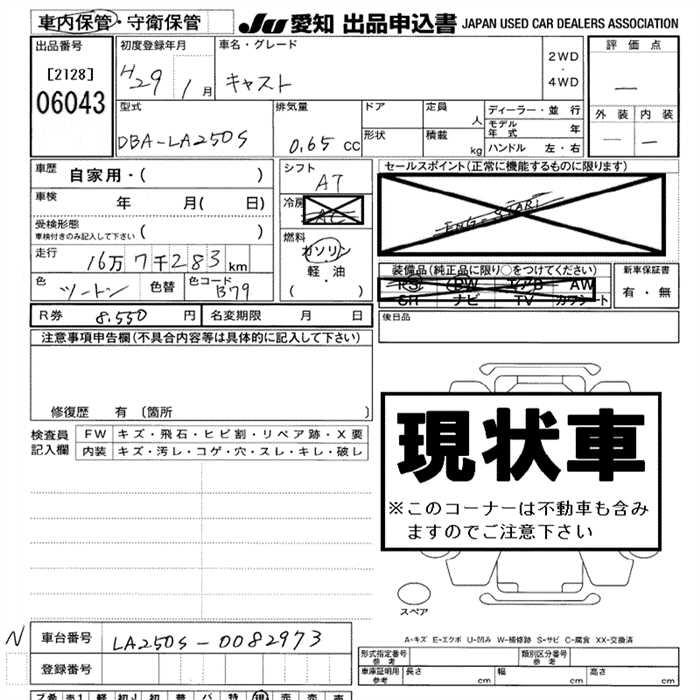 車内保管・守衛保管 JU 愛知 出品申込書 JAPAN USED CAR DEALERS ASSOCIATION
出品番号 初度登録年月 車名・グレード 評価点
[2128] H29 1月 キャスト 2WD・4WD —
06043 外装 内装
型式 排気量 ドア 定員 人 ディーラー・並行 — —
DBA-LA250S 0.65 CC 形状 積載 kg モデル年式 年
ハンドル 左・右
車歴 自家用・( ) シフト AT セールスポイント(正常に機能するものに限ります)
車検 年 月( 日) 冷房 AC
受検形態 ( ) 燃料
車検付きのみ記入して下さい ガソリン
走行 16万7千283km 軽・油 装備品(純正品に限り○をつけてください) 新車保証書
色 ツートン 色替 色コード B79 ・( ) PS PW エアB AW 有・無
SR ナビ TV カワシート
R券 8.550 円 名変期限 月 日 後日品
注意事項申告欄(不具合内容等は具体的に記入して下さい)
修復歴 有 〔箇所 〕
検査員 FW キズ・飛石・ヒビ割・リペア跡・X要
記入欄 内装 キズ・汚レ・コゲ・穴・スレ・キレ・破レ
現状車
※このコーナーは不動車も含み
ますのでご注意下さい
スペア
A-キズ E-エクボ U-凹み W-補修跡 S-サビ C-腐食 XX-交換済
N 車台番号 LA250S-0082973
登録番号
形式指定番号 参考 類別区分番号 参考
車庫証明用 参考 長さ cm 幅 cm 高さ cm